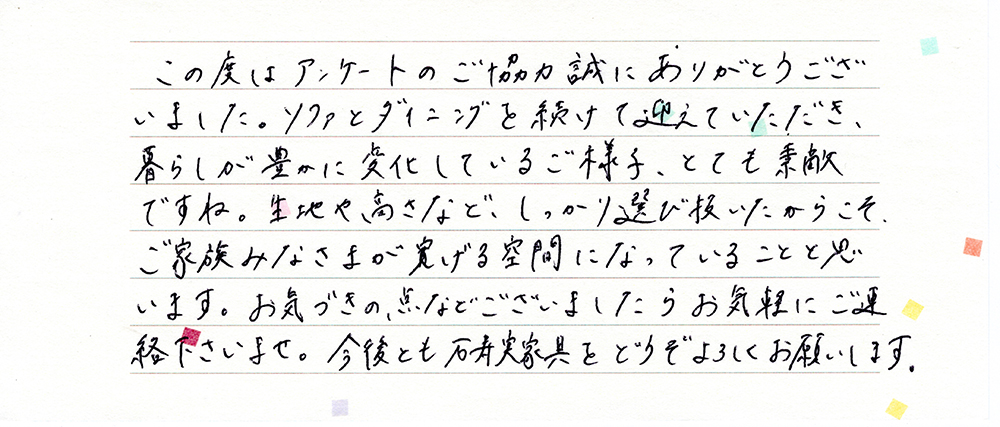 この度はアンケートのご協力誠にありがとうござ
いました。ソファとダイニングを続けて迎えていただき、
暮らしが豊かに変化しているご様子、とても素敵
ですね。生地や高さなど、しっかり選び抜いたからこそ、
ご家族みなさまが寛げる空間になっていることと思
います。お気づきの点などございましたらお気軽にご連
絡下さいませ。今後とも石井実家具をどうぞよろしくお願いします。